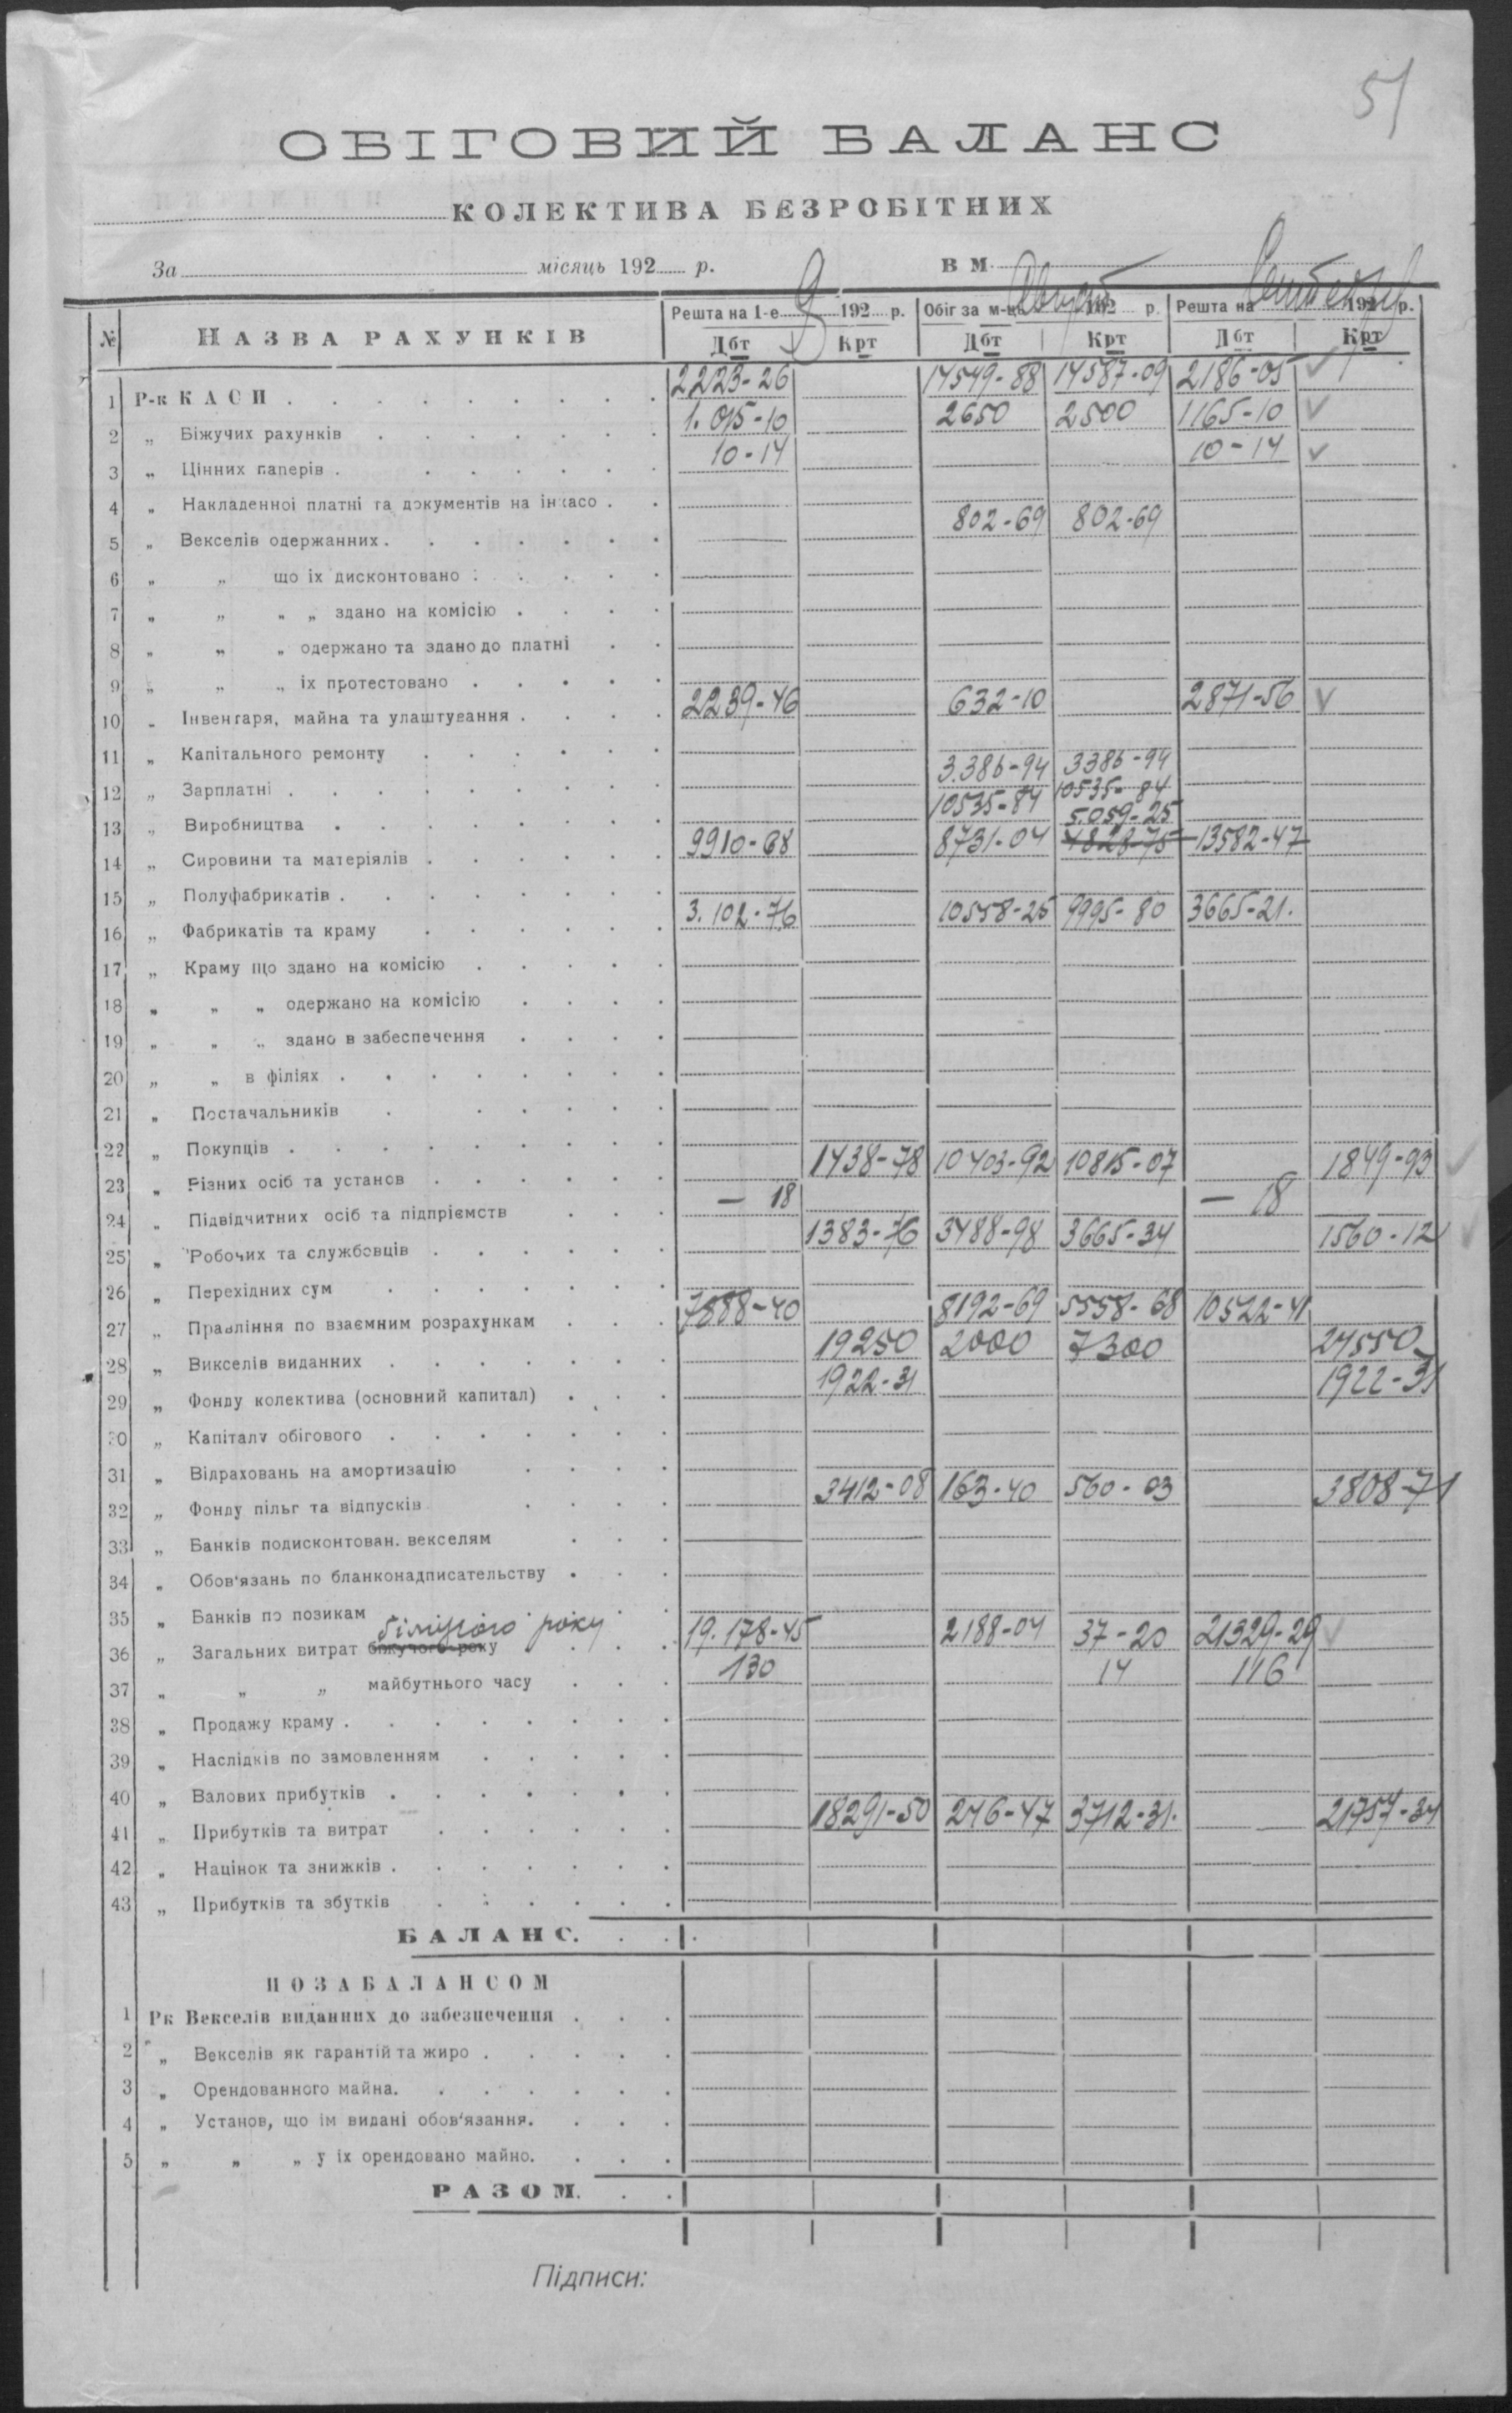 51
ОБІГОВИЙ БАЛАНС
КОЛЕКТИВА БЕЗРОБІТНИХ
За місяць 192 р. В М.
№ НАЗВА РАХУНКІВ Решта на 1-е 192 р. Обіг за м-ць 192 р. Решта на 192 р.
Дбт Крт Дбт Крт Дбт Крт
1 Р-к КАСИ 2223-26 14549-88 14587-09 2186-05
2 „ Біжучих рахунків 1.015-10 2650 2500 1165-10
3 „ Цінних паперів 10-14 10-14
4 „ Накладенної платні та документів на інкасо
5 „ Векселів одержанних 802-69 802-69
6 „ „ що іх дисконтовано
7 „ „ „ „ здано на комісію
8 „ „ „ одержано та здано до платні
9 „ „ „ іх протестовано
10 „ Інвентаря, майна та улаштування 2239-46 632-10 2871-56
11 „ Капітального ремонту
12 „ Зарплатні 3.386-94 3386-94
13 „ Виробництва 10535-84 10535-84
5.059-25
14 „ Сировини та матеріялів 9910-68 8731-04 4828-75 13582-47
15 „ Полуфабрикатів
16 „ Фабрикатів та краму 3.102-76 10558-25 9995-80 3665-21.
17 „ Краму що здано на комісію
18 „ „ „ одержано на комісію
19 „ „ „ здано в забеспечення
20 „ „ в філіях
21 „ Постачальників
22 „ Покупців
23 „ Різних осіб та установ 1438-78 10403-92 10815-07 1849-93
24 „ Підвідчитних осіб та підпріємств — 18 — 18
25 „ Робочих та службовців 1383-76 3488-98 3665-34 1560-12
26 „ Перехідних сум
27 „ Правління по взаємним розрахункам 7888-40 8192-69 5558-68 10522-41
28 „ Викселів виданних 19250 2000 7300 24550
29 „ Фонду колектива (основний капитал) 1922-31 1922-31
30 „ Капіталу обігового
31 „ Відраховань на амортизацію
32 „ Фонду пільг та відпусків 3412-08 163-40 560-03 3808-71
33 „ Банків подисконтован. векселям
34 „ Обов'язань по бланконадписательству
35 „ Банків по позикам
36 „ Загальних витрат біжучого року року 19.178-45 2188-04 37-20 21329-29
37 „ „ „ майбутнього часу 130 14 116
38 „ Продажу краму
39 „ Наслідків по замовленням
40 „ Валових прибутків
41 „ Прибутків та витрат 18291-50 246-47 3712-31. 21757-34
42 „ Націнок та знижків
43 „ Прибутків та збутків
БАЛАНС.
ПОЗАБАЛАНСОМ
1 Рк Векселів виданних до забезпечення
2 „ Векселів як гарантій та жиро
3 „ Орендованного майна.
4 „ Установ, що ім видані обов'язання.
5 „ „ „ у іх орендовано майно.
РАЗОМ.
Підписи: